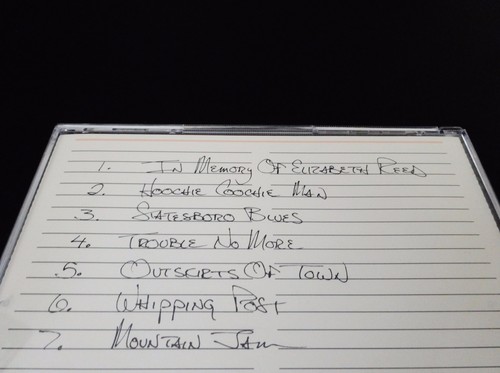 1. In Memory Of Elizabeth Reed
2. Hoochie Coochie Man
3. Statesboro Blues
4. Trouble No More
5. Outskirts Of Town
6. Whipping Post
7. Mountain Jam